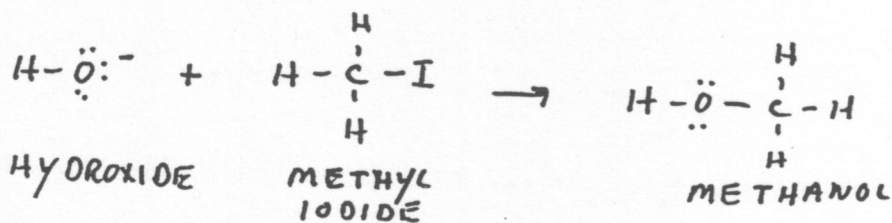 H
H
H-Ö:⁻ + H-C-I → H-Ö-C-H
H
H
HYDROXIDE
METHYL
IODIDE
METHANOL